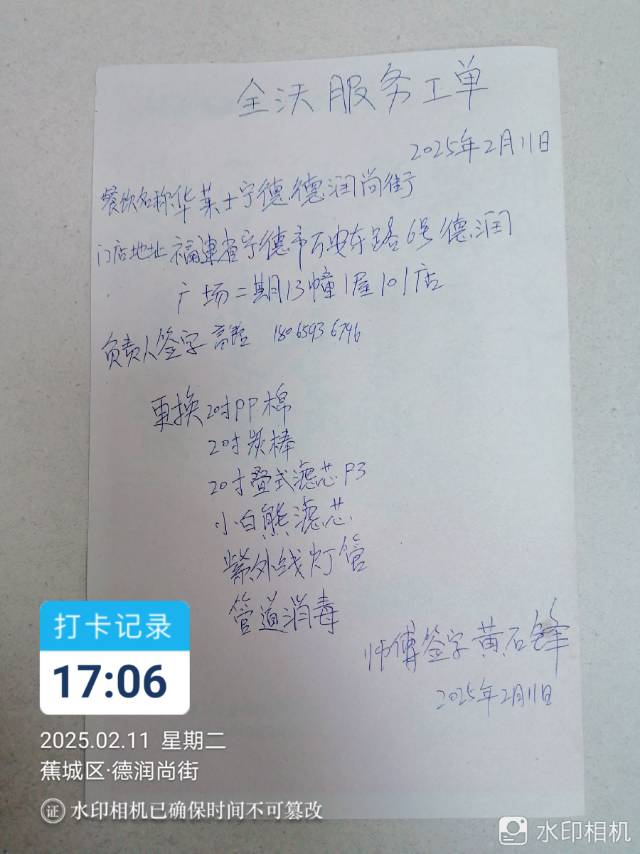 全沃服务工单
2025年2月11日
餐饮名称:华莱士宁德德润尚街
门店地址 福建省宁德市万安东路6号德润
广场二期13幢1层101店
负责人签字 高 18065936796
更换20寸PP棉
20寸炭棒
20寸叠式滤芯P3
小白熊滤芯
紫外线灯管
管道消毒
师傅签字黄石锋
2025年2月11日
打卡记录
17:06
2025.02.11 星期二
蕉城区·德润尚街
证 水印相机已确保时间不可篡改
水印相机